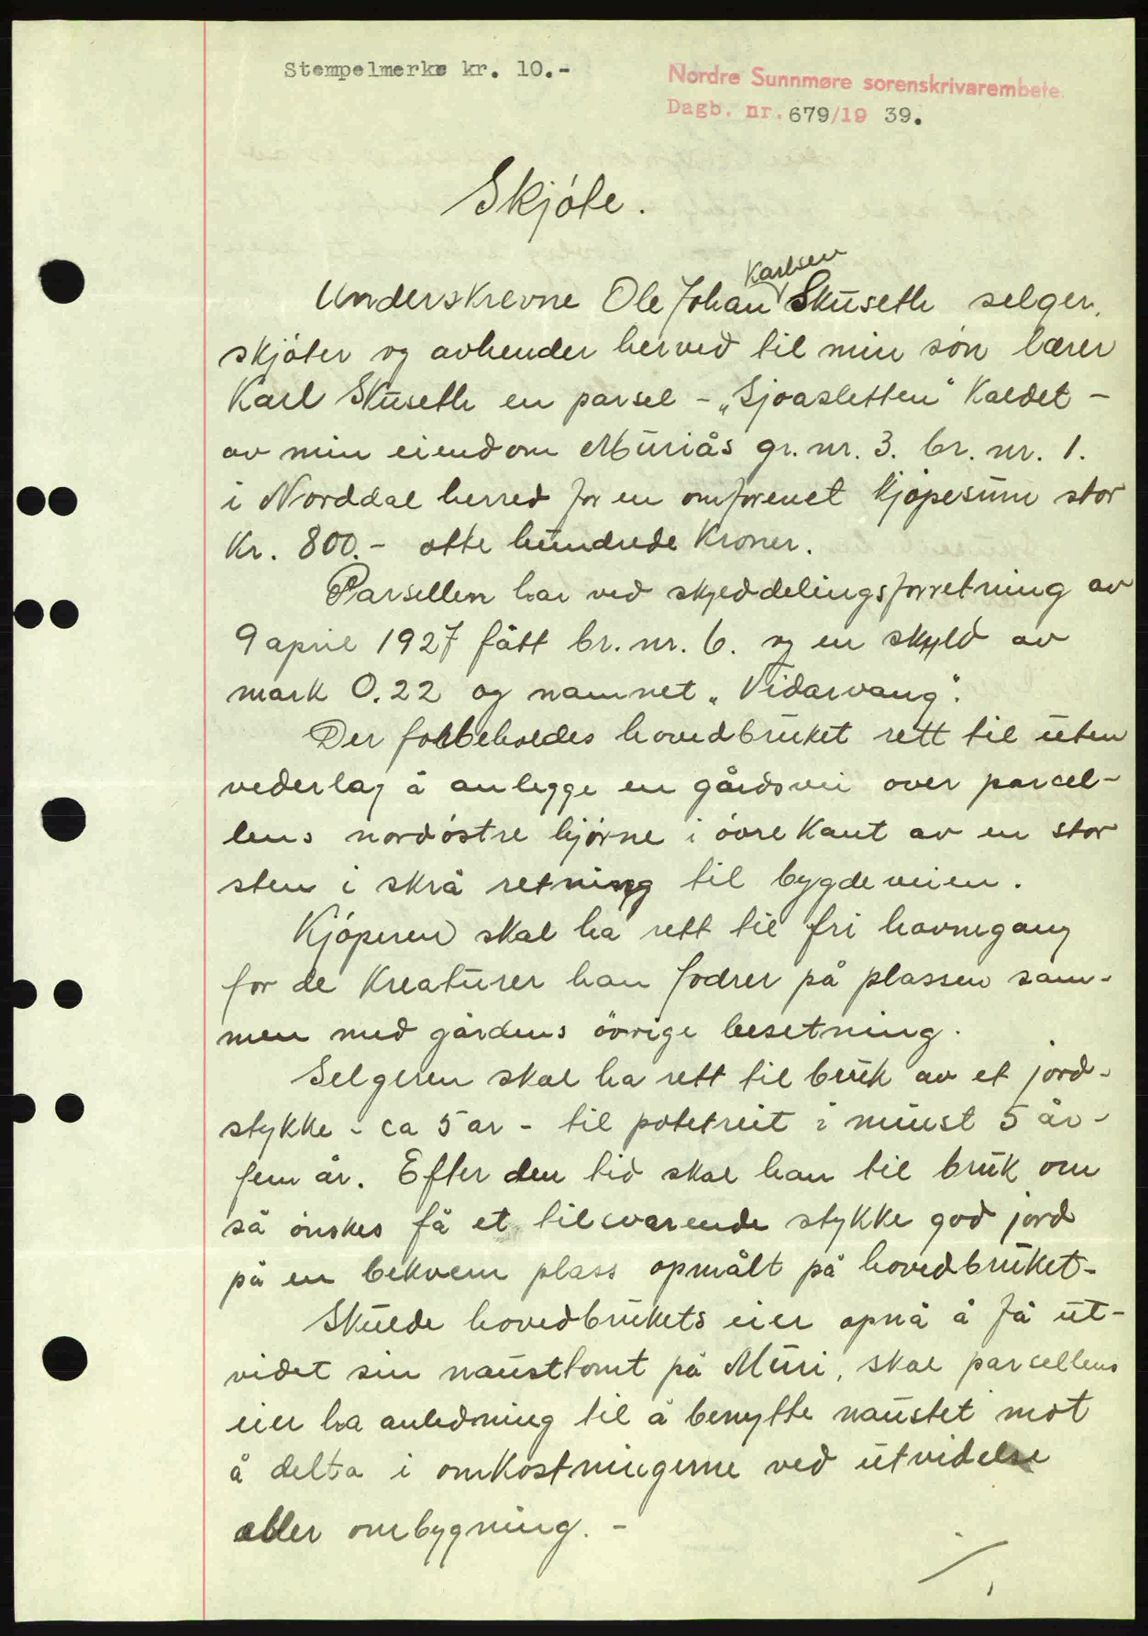 Stempelmerke kr. 10.-
Nordre Sunnmøre sorenskrivarembete.
Dagb. nr. 679/19 39.
Skjóte.
Karlsen
Underskrevne Ole Johan Skuseth selger,
skjóter og avhender herved til min són lærer
Karl Skuseth en parsel - „Sjoasletten" kaldet -
av min eiendom Muriås gr. nr. 3. br. nr. 1.
i Norddal herred for en omforenet kjópesum stor
Kr. 800.- otte hundrede kroner.
Parsellen har ved skylddelingsforretning av
9 april 1927 fått br. nr. 6. og en skyld av
mark 0.22 og namnet „Vidarvang".
Der forbeholdes hovedbruket rett til uten
vederlag å anlegge en gårdsvei over parcel-
lens nordóstre hjórne i óvre kant av en stor
sten i skrå retning til bygdeveien.
Kjóperen skal ha rett til fri havnegang
for de kreaturer han fodrer på plassen sam-
men med gårdens óvrige besetning.
Selgeren skal ha rett til bruk av et jord-
stykke - ca 5 ar - til potetreit i minst 5 år -
fem år. Efter den tid skal han til bruk om
så ónskes få et tilsvarende stykke god jord
på en bekvem plass opmålt på hovedbruket.
Skulde hovedbrukets eier opnå å få ut-
videt sin nausttomt på Muri, skal parcellens
eier ha anledning til å benytte naustet mot
å delta i omkostningerne ved utvidelse
eller ombygning. -